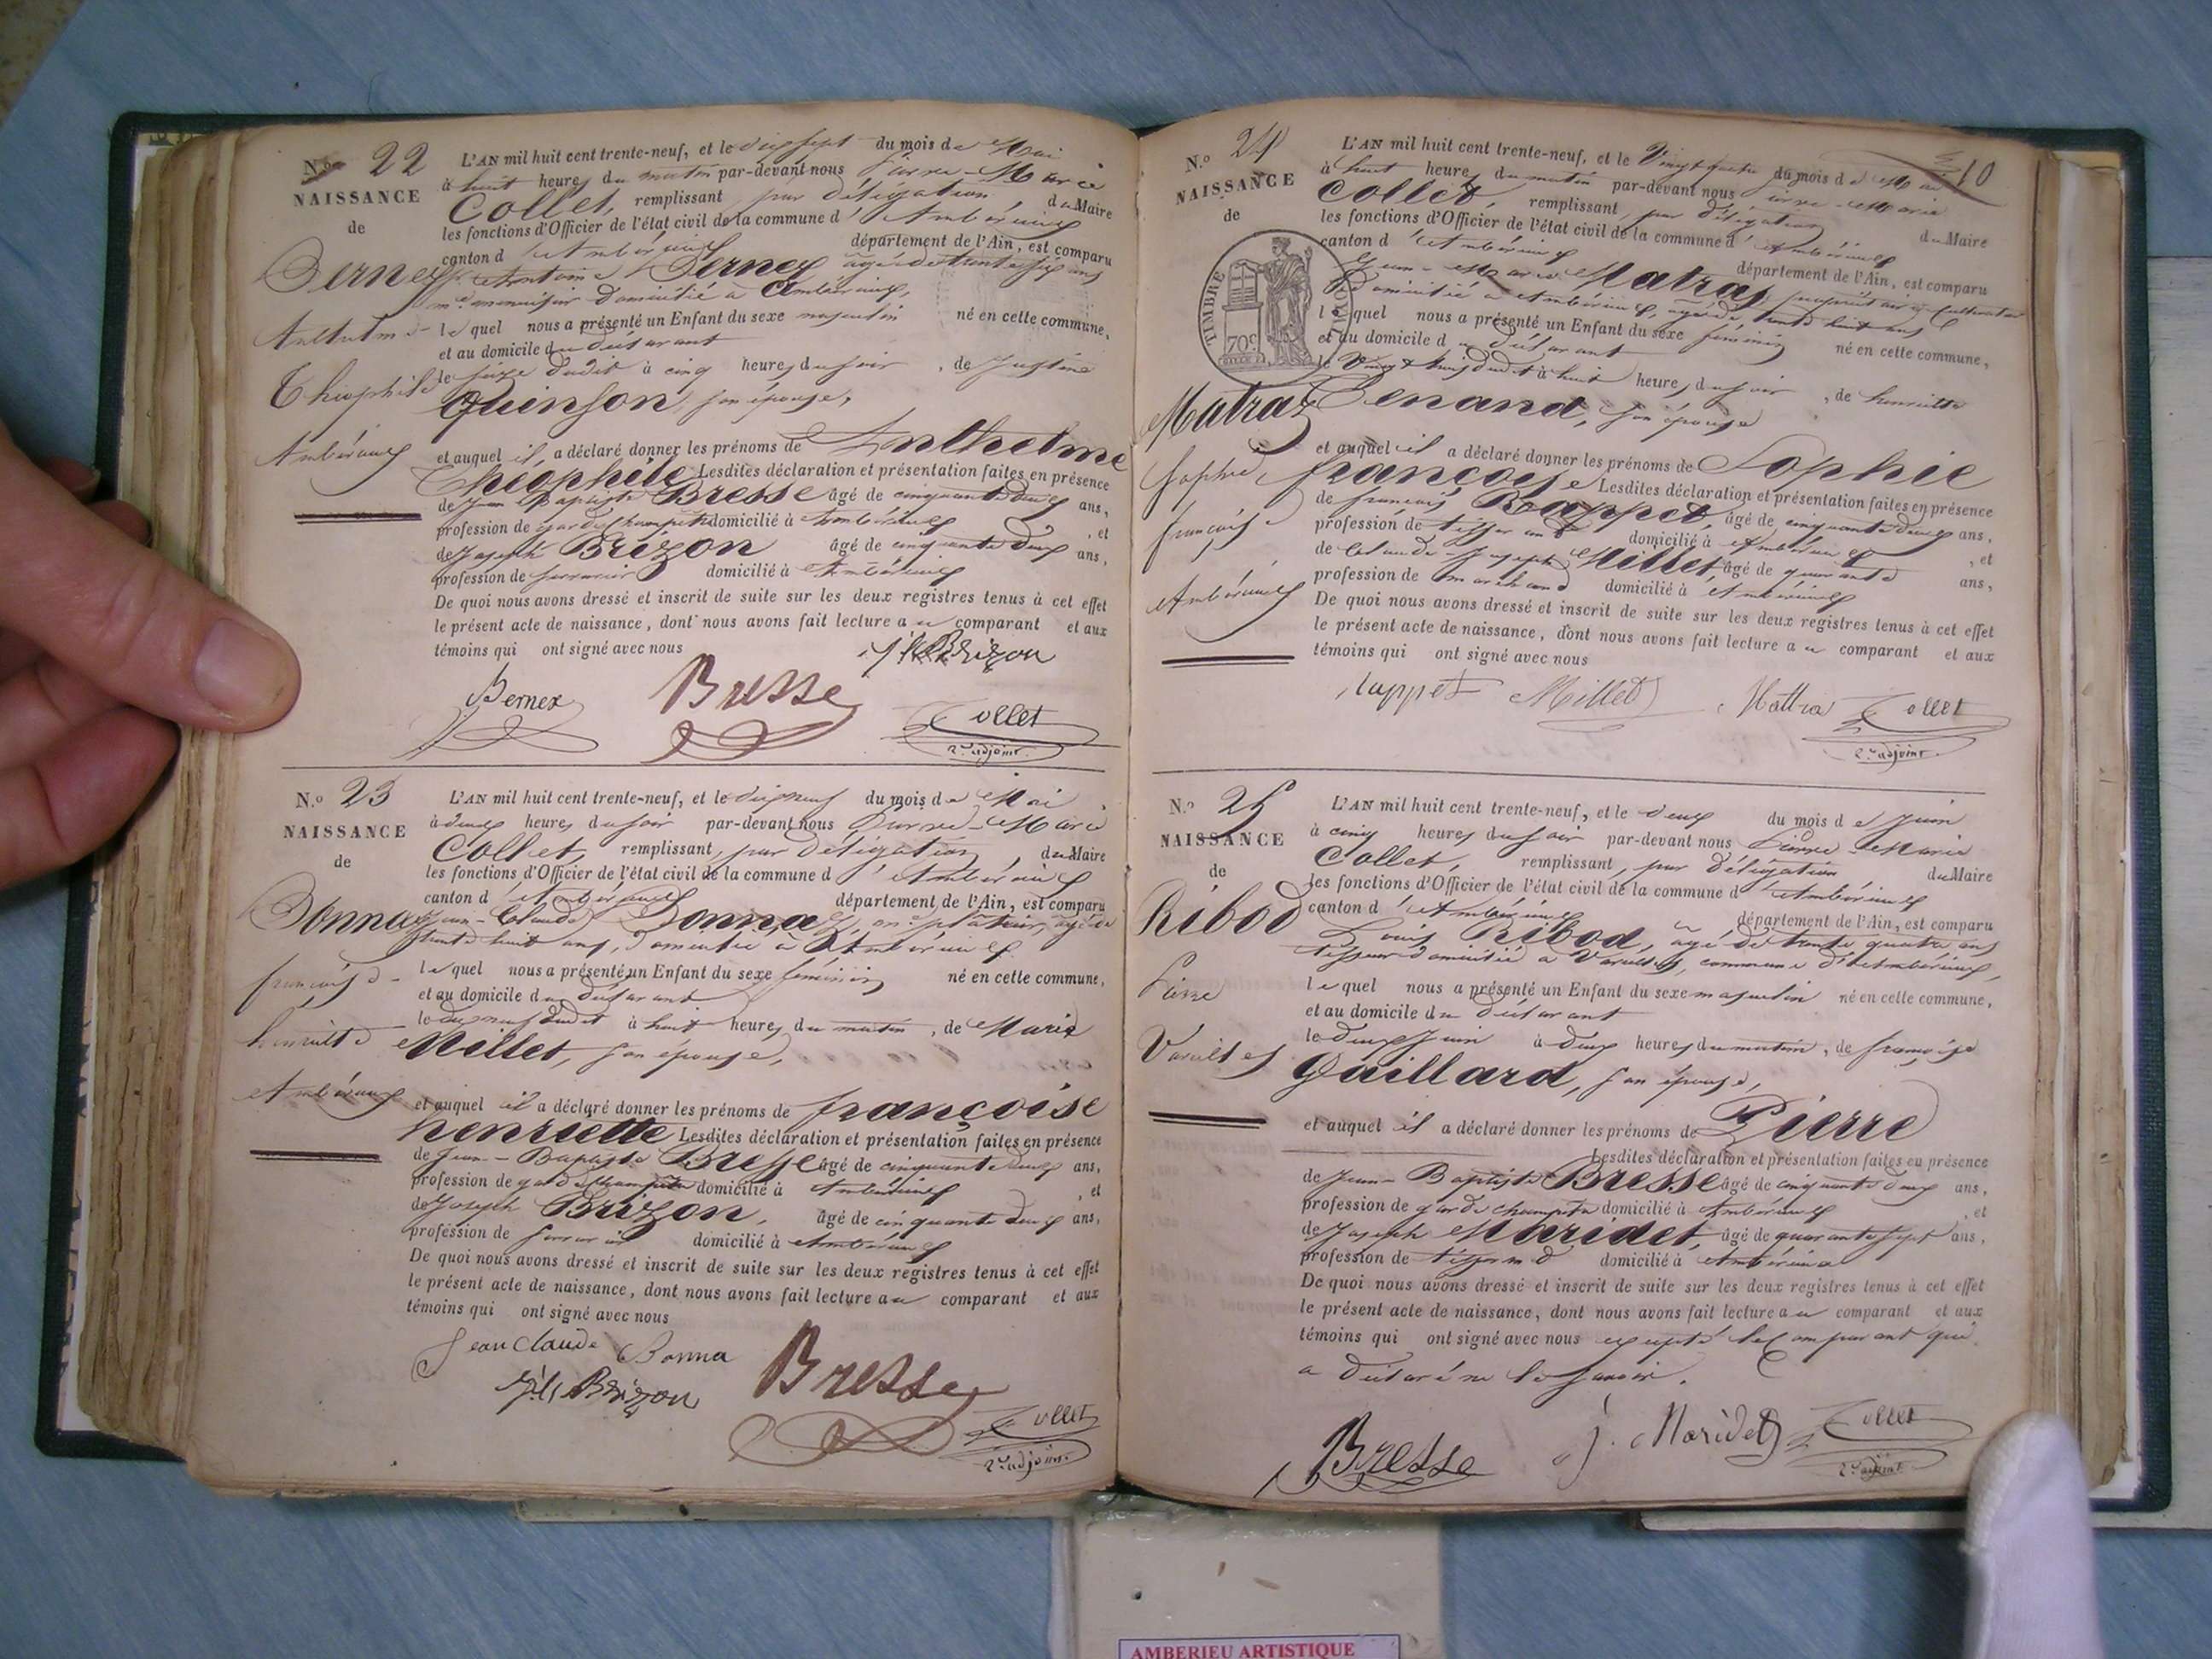 N.º 22
NAISSANCE
de
Bernex
Anthelme
Théophile
Ambérieux
L'AN mil huit cent trente-neuf, et le dix sept du mois de Mai
à huit heures du matin par-devant nous Pierre-Marie
Collet, remplissant, par délégation du Maire
les fonctions d'Officier de l'état civil de la commune d'Ambérieux
canton d'Ambérieux département de l'Ain, est comparu
Antoine Bernex, âgé de trente six ans
md menuisier domicilié à Ambérieux,
lequel nous a présenté un Enfant du sexe masculin né en cette commune,
et au domicile du déclarant
le seize dudit à cinq heures du soir, de Justine
Quinson, son épouse,
et auquel il a déclaré donner les prénoms de Anthelme
Théophile Lesdites déclaration et présentation faites en présence
de Jean Baptiste Bresse âgé de cinquante deux ans,
profession de garde champêtre domicilié à Ambérieux, et
de Joseph Brizon âgé de cinquante deux ans,
profession de serrurier domicilié à Ambérieux
De quoi nous avons dressé et inscrit de suite sur les deux registres tenus à cet effet
le présent acte de naissance, dont nous avons fait lecture au comparant et aux
témoins qui ont signé avec nous
Brizon
Bernex Bresse Collet
2e adjoint
N.º 23
NAISSANCE
de
Bonnaz
françoise
henriette
Ambérieux
L'AN mil huit cent trente-neuf, et le dix neuf du mois de Mai
à deux heures du soir par-devant nous Pierre-Marie
Collet, remplissant, par délégation, du Maire
les fonctions d'Officier de l'état civil de la commune d'Ambérieux
canton d'Ambérieux département de l'Ain, est comparu
Jean-Claude Bonnaz, md plâtrier, âgé de
trente huit ans, domicilié à Ambérieux
lequel nous a présenté un Enfant du sexe féminin né en cette commune,
et au domicile du déclarant
le dix neuf dudit à huit heures du matin, de Marie
Millet, son épouse,
et auquel il a déclaré donner les prénoms de françoise
henriette Lesdites déclaration et présentation faites en présence
de Jean-Baptiste Bresse âgé de cinquante deux ans,
profession de garde champêtre domicilié à Ambérieux, et
de Joseph Brizon, âgé de cinquante deux ans,
profession de serrurier domicilié à Ambérieux
De quoi nous avons dressé et inscrit de suite sur les deux registres tenus à cet effet
le présent acte de naissance, dont nous avons fait lecture au comparant et aux
témoins qui ont signé avec nous
Jean Claude Bonna
Brizon Bresse
Collet
2e adjoint
10
N.º 24
NAISSANCE
de
TIMBRE
70c
Matraz
Sophie
françoise
Ambérieux
L'AN mil huit cent trente-neuf, et le Vingt quatre du mois de Mai
à huit heures du matin par-devant nous Pierre-Marie
Collet, remplissant, par délégation du Maire
les fonctions d'Officier de l'état civil de la commune d'Ambérieux
canton d'Ambérieux département de l'Ain, est comparu
Jean-Marie Matraz propriétaire cultivateur
Domicilié à Ambérieux, âgé de trente huit ans
lequel nous a présenté un Enfant du sexe féminin né en cette commune,
et au domicile du déclarant
le Vingt trois dudit à huit heures du soir, de henriette
Tenand, son épouse
et auquel il a déclaré donner les prénoms de Sophie
françoise Lesdites déclaration et présentation faites en présence
de françois Rappet, âgé de cinquante deux ans,
profession de tisserand domicilié à Ambérieux, et
de Claude-Joseph Millet, âgé de quarante ans,
profession de marchand domicilié à Ambérieux
De quoi nous avons dressé et inscrit de suite sur les deux registres tenus à cet effet
le présent acte de naissance, dont nous avons fait lecture au comparant et aux
témoins qui ont signé avec nous
Rappet Millet Mattra Collet
2e adjoint
N.º 25
NAISSANCE
de
Ribod
Pierre
Vareilles
L'AN mil huit cent trente-neuf, et le deux du mois de Juin
à cinq heures du soir par-devant nous Pierre-Marie
Collet, remplissant, par délégation du Maire
les fonctions d'Officier de l'état civil de la commune d'Ambérieux
canton d'Ambérieux département de l'Ain, est comparu
Louis Ribod, âgé de trente quatre ans
tisseur domicilié à Vareilles, commune d'Ambérieux,
lequel nous a présenté un Enfant du sexe masculin né en cette commune,
et au domicile du déclarant
le deux Juin à deux heures du matin, de françoise
Gaillard, son épouse,
et auquel il a déclaré donner les prénoms de Pierre
Lesdites déclaration et présentation faites en présence
de Jean-Baptiste Bresse âgé de cinquante deux ans,
profession de garde champêtre domicilié à Ambérieux, et
de Joseph Maridet, âgé de quarante sept ans,
profession de domicilié à Ambérieux
De quoi nous avons dressé et inscrit de suite sur les deux registres tenus à cet effet
le présent acte de naissance, dont nous avons fait lecture au comparant et aux
témoins qui ont signé avec nous excepté le comparant qui
a déclaré ne le savoir.
Bresse J. Maridet Collet
2e adjoint
AMBERIEU ARTISTIQUE